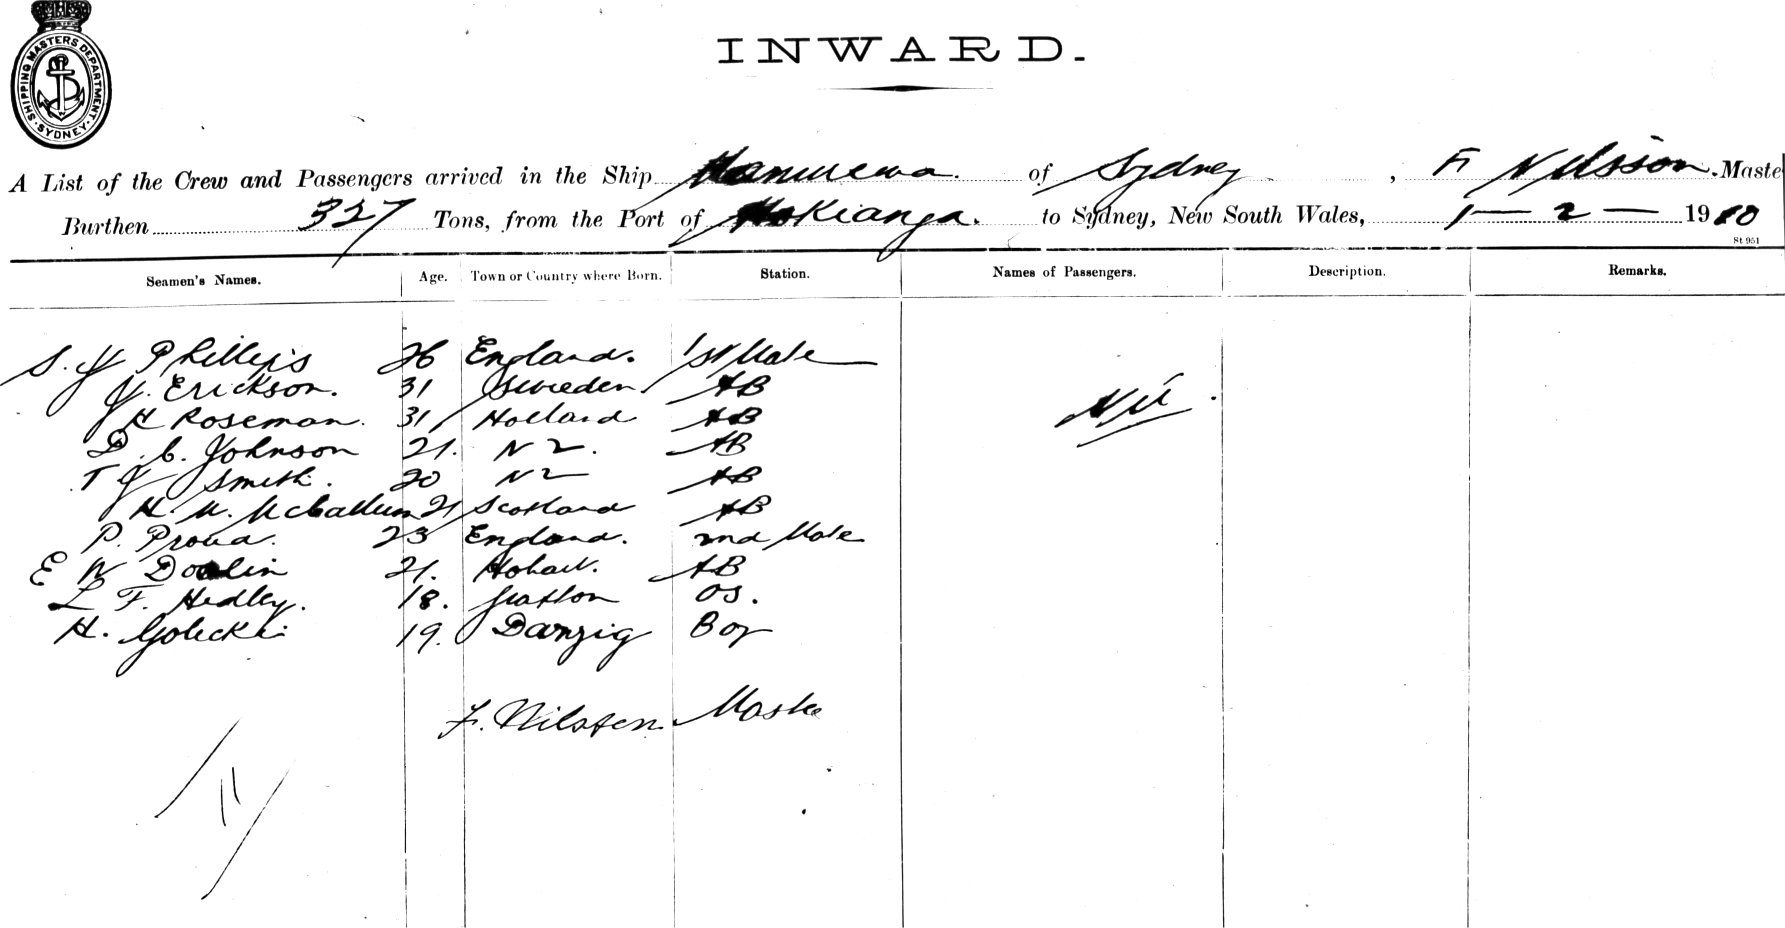 SHIPPING MASTERS DEPARTMENT
SYDNEY
INWARD.
A List of the Crew and Passengers arrived in the Ship Manurewa. of Sydney, F Nilsson. Maste
Burthen 327 Tons, from the Port of Hokianga. to Sydney, New South Wales, 1 — 2 — 1910
St 951
Seamen's Names. Age. Town or Country where Born. Station. Names of Passengers. Description. Remarks.
S. J Phillips 26 England. 1st Mate
J. Erickson. 31 Sweden AB Nil.
H Roseman. 31 Holland AB
D. C. Johnson 21. N Z. AB
T J Smith. 20 N Z AB
H. M. McCallum 21 Scotland AB
P. Proud. 23 England. 2nd Mate
E W Doolin 21. Hobart. AB
L F. Hedley. 18. Grafton OS.
H. Golecki 19. Danzig Boy
F. Nilsson Master
11